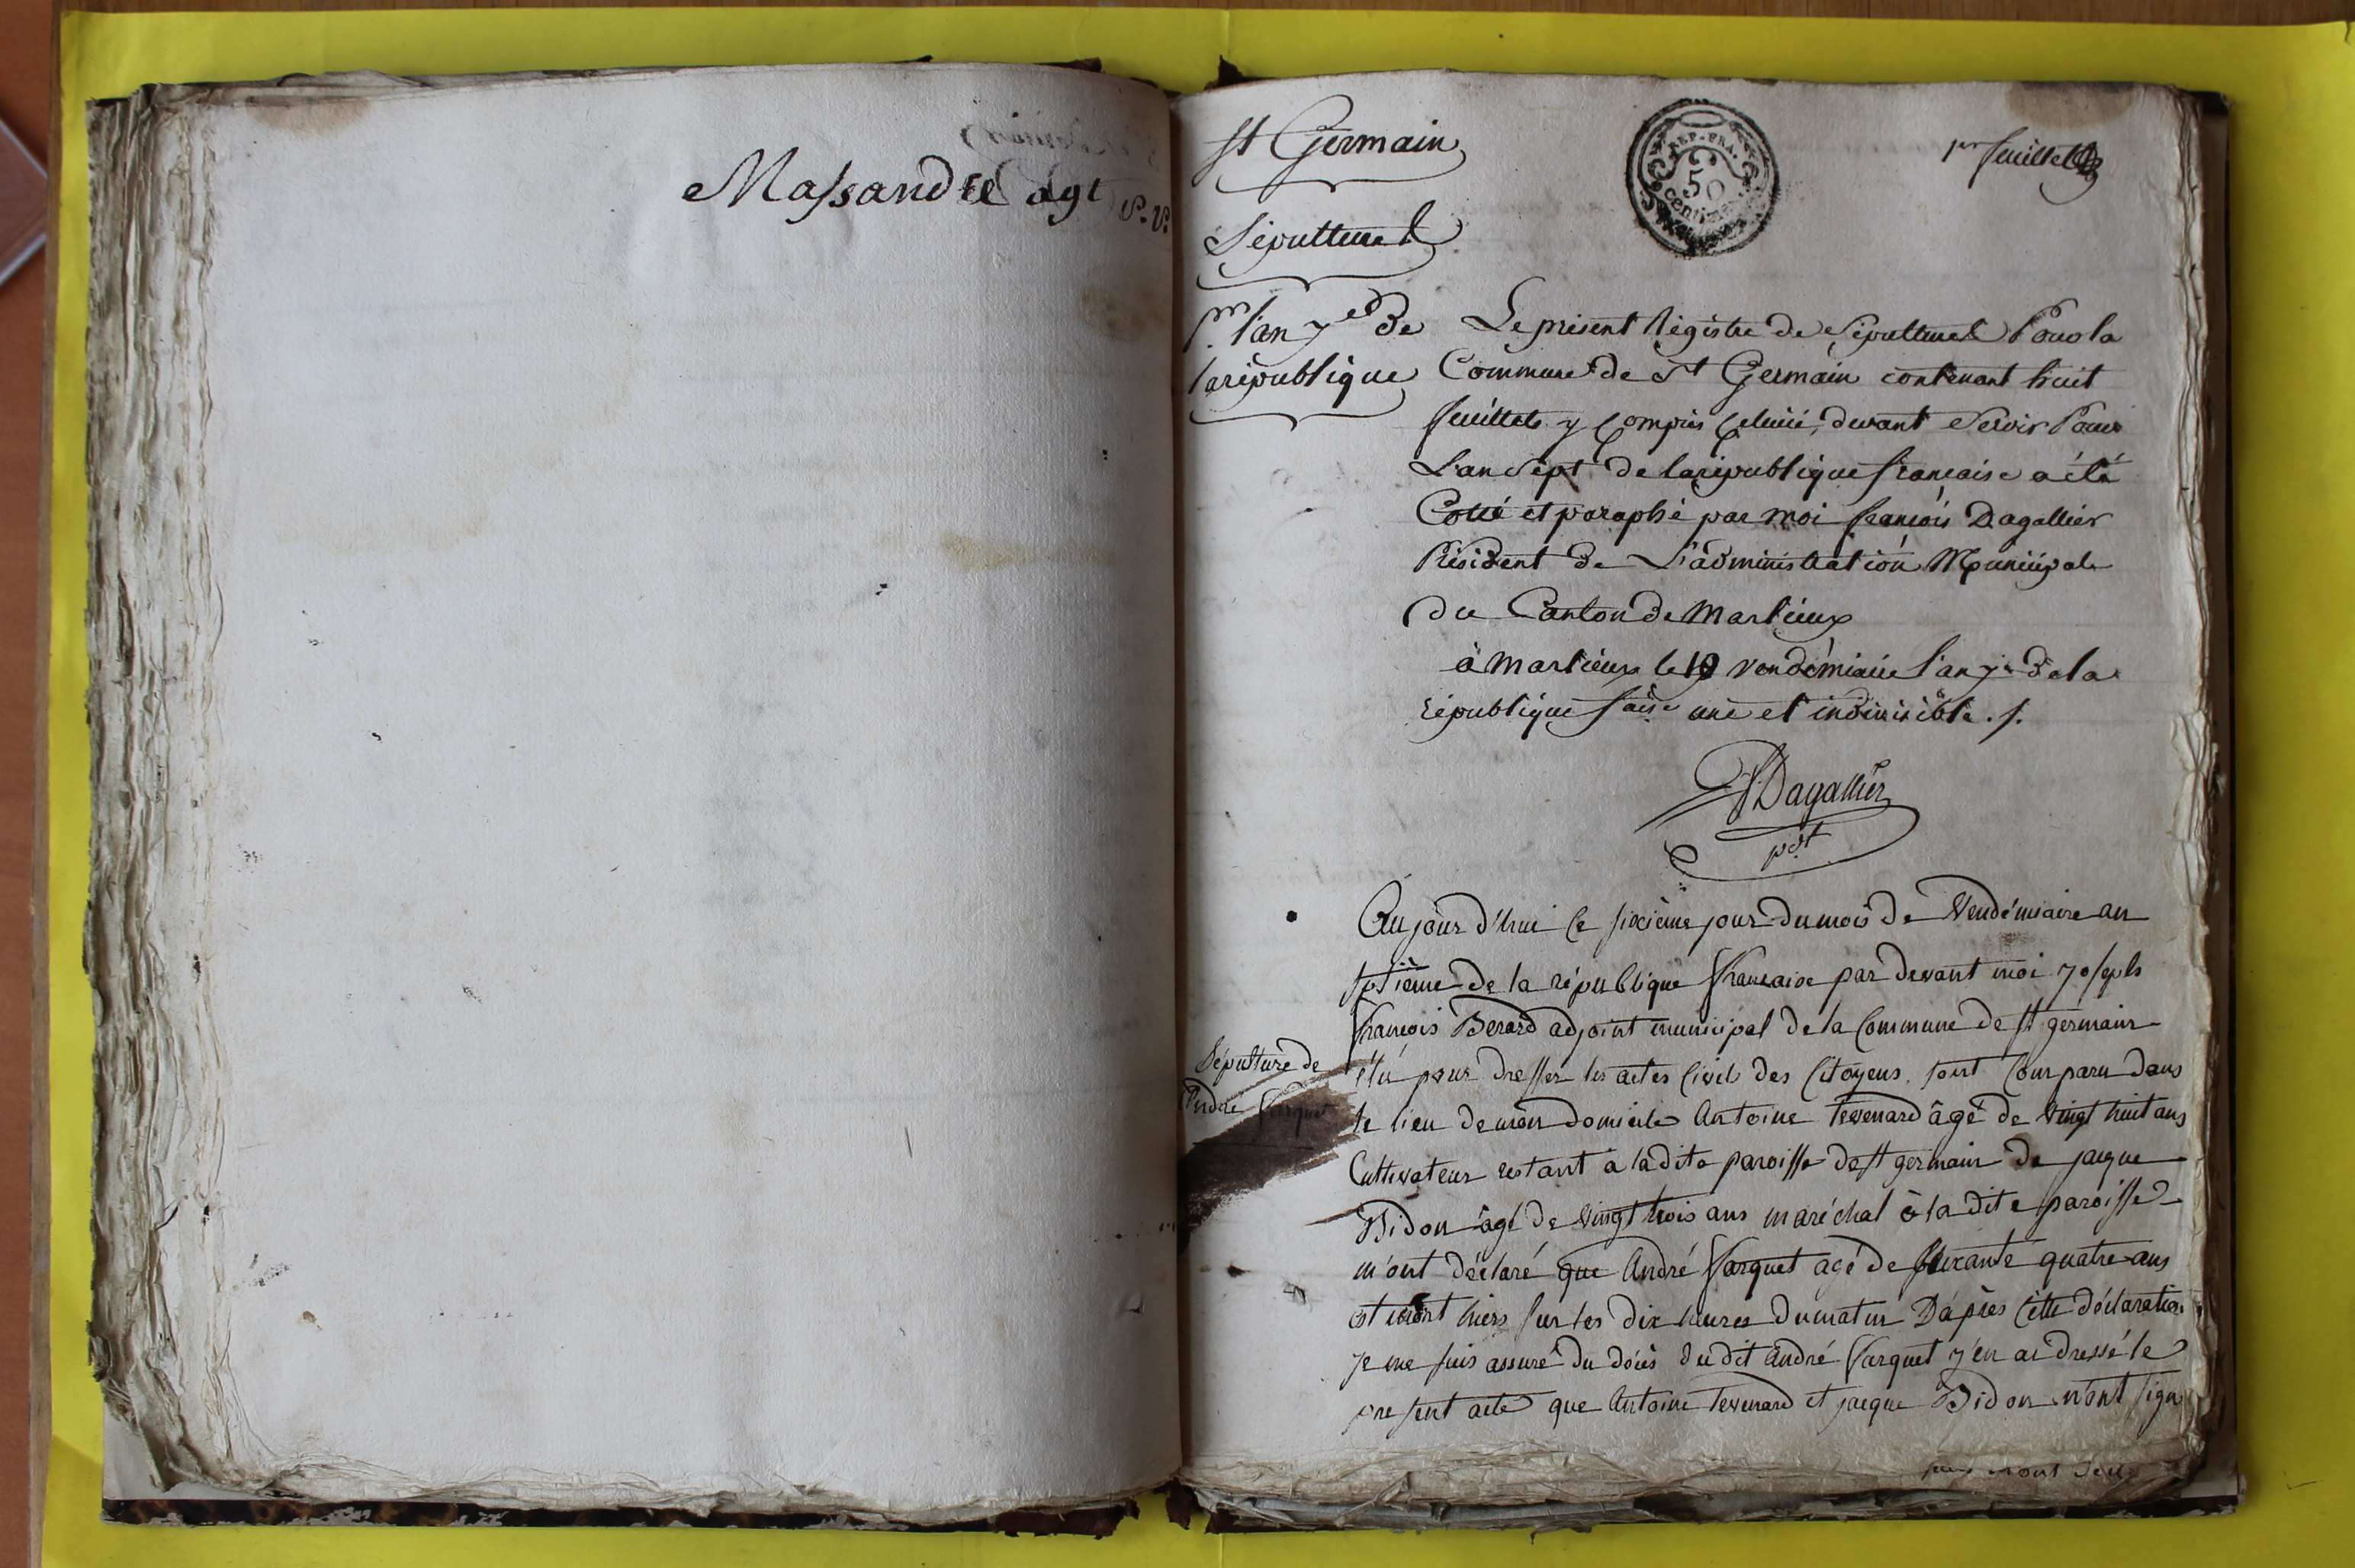 Massandre agt
St Germain
1er feuillet
REP. FRA.
50
centimes
Sépultures
pr l'an 7e de
la république
Le présent Régistre de Sépultures Pour la
Commune de St Germain contenant huit
feuillets y Compris Celuici, devant Servir Pour
L'an Sept de la république francaise a été
Cotté et paraphé par moi françois Dagallier
Président de L'administration Municipale
du Canton de Marlieux
à Marlieux le 19 vendémiaire l'an 7e de la
république faise une et indivisible ./.
F. Dagallier
pdt
Aujourd'hui le sixième jour du mois de Vendémiaire an
septième de la république francaise par devant moi joseph
françois Berard adjoint municipal de la Commune de st germain
élu pour dresser les actes Civils des Citoyens, sont Comparu dans
le lieu de mon domicile Antoine Tevenard âgé de vingt huit ans
Cultivateur restant à la dite paroisse de st germain de jacque
Bidon âgé de vingt trois ans maréchal à la dite paroisse
m'ont déclaré que André farquet agé de soixante quatre ans
est mort hiers sur les dix heures du matin D'après Cette déclaration
je me suis assuré du décès du dit André farquet j'en ai dressé le
present acte que Antoine Tevenard et jacque Bidon n'ont signé
Sépulture de
André farquet